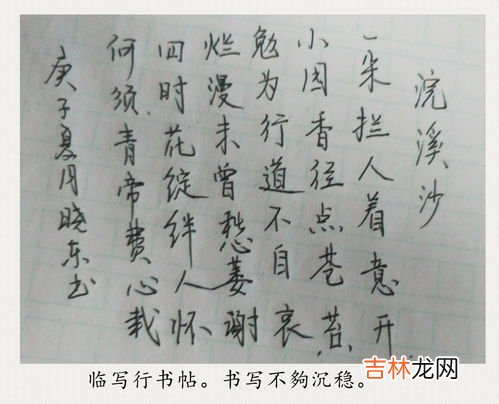 浣溪沙
一朵拦人着意开
小园香径点苍苔
勉为行道不自哀
烂漫未曾愁萎谢
四时花绽绊人怀
何须青帝费心栽
庚子夏月晓东书
临写行书帖。书写不夠沉稳。
吉林龙网